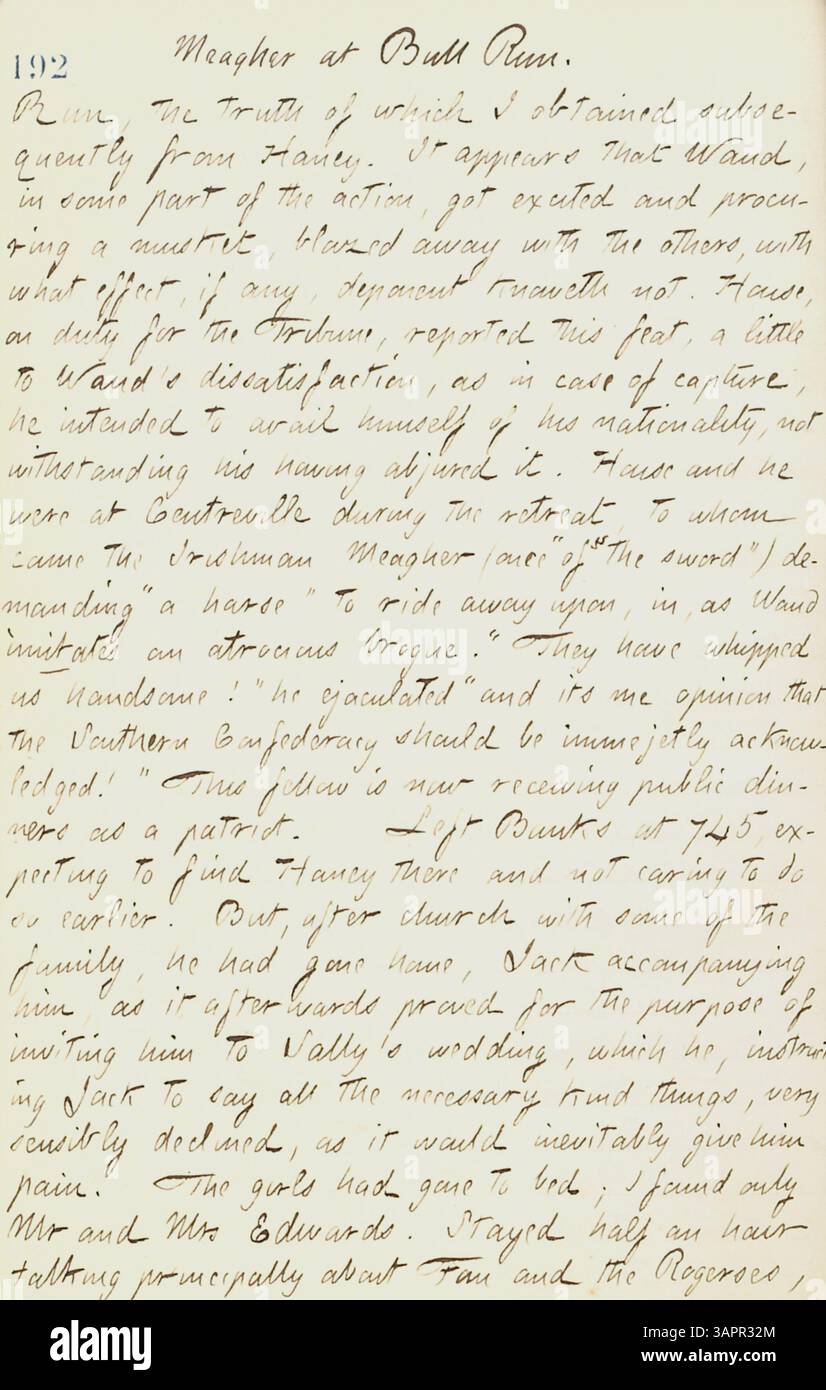 192
Meagher at Bull Run.
Run, the truth of which I obtained subse-
quently from Haney. It appears that Waud,
in some part of the action, got excited and procu-
ring a musket, blazed away with the others, with
what effect, if any, deponent knoweth not. House,
on duty for the Tribune, reported this feat, a little
to Waud's dissatisfaction, as in case of capture,
he intended to avail himself of his nationality, not
withstanding his having abjured it. House and he
were at Centreville during the retreat, to whom
came the Irishman Meagher (once "of the sword") de-
manding "a harse" to ride away upon, in, as Waud
imitates an atrocious brogue. "They have whipped
us handsome!" he ejaculated "and its me opinion that
the Southern Confederacy should be immejetly acknow-
ledged!" This fellow is now receiving public din-
ners as a patriot. Left Bunks at 745, ex-
pecting to find Haney there and not caring to do
so earlier. But, after church with some of the
family, he had gone home, Jack accompanying
him, as it afterwards proved for the purpose of
inviting him to Sally's wedding, which he, instruct
ing Jack to say all the necessary kind things, very
sensibly declined, as it would inevitably give him
pain. The girls had gone to bed; I found only
Mr and Mrs Edwards. Stayed half an hour
talking principally about Fan and the Rogerses,
alamy
Image ID: 3APR32M
www.alamy.com